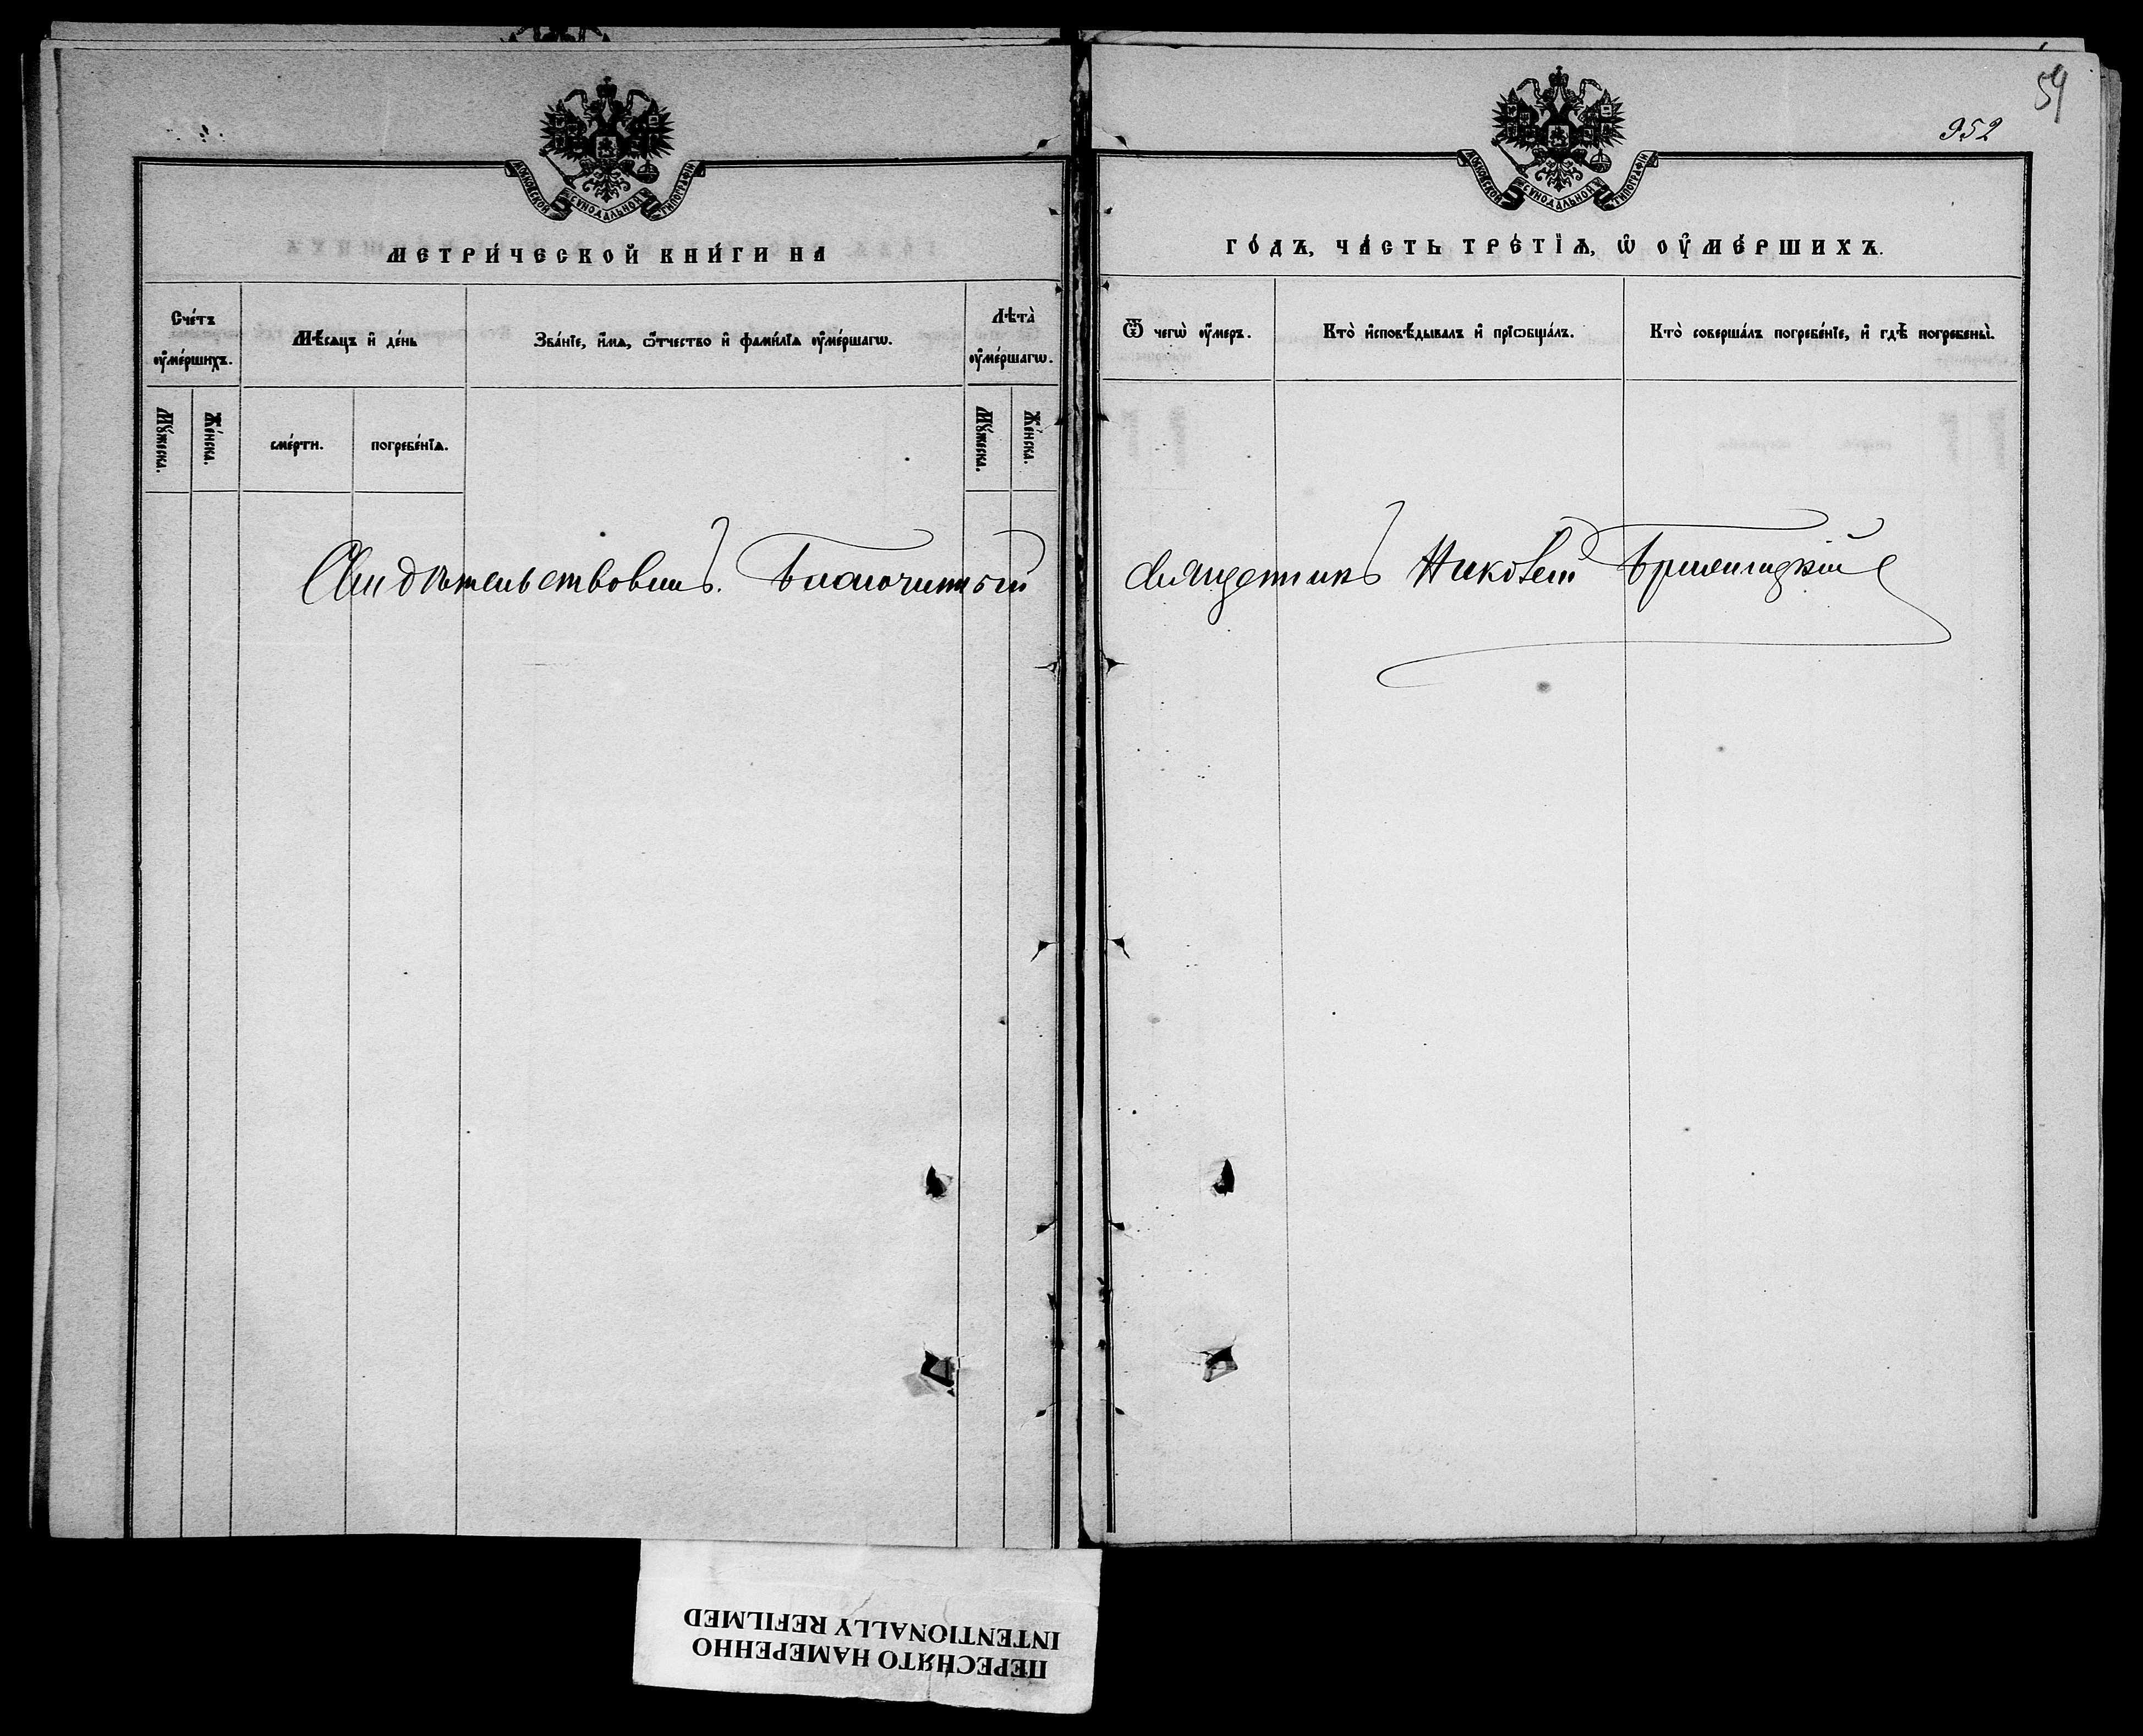 59
952
МОСКОВСКОЙ СѴНОДАЛЬНОЙ ТИПОГРАФІИ
МОСКОВСКОЙ СѴНОДАЛЬНОЙ ТИПОГРАФІИ
МЕТРИ́ЧЕСКОЙ КНИ́ГИ НА
ГО́ДЪ, ЧА́СТЬ ТРЕ́ТІѦ, Ѡ ОУ҆МЕ́РШИХЪ.
Сче́тъ ᲂу҆ме́ршихъ.
Мѣ́сяцъ и҆ де́нь
Зва́нїе, и҆́мѧ, ѻ҆́тчество и҆ фами́лїѧ ᲂу҆ме́ршагѡ.
Лѣта̀ ᲂу҆ме́ршагѡ.
Ѿ чегѡ̀ ᲂу҆́меръ.
Кто̀ и҆сповѣ́дывалъ и҆ прїѡбща́лъ.
Кто̀ соверша́лъ погребе́нїе, и҆ гдѣ̀ погребены̀.
Мꙋ́жеска.
Же́нска.
сме́рти.
погребе́нїѧ.
Мꙋ́жеска.
Же́нска.
Свидѣтельствовалъ. Благочинный священникъ Николай
ПЕРЕСНЯТО НАМЕРЕННО
INTENTIONALLY REFILMED